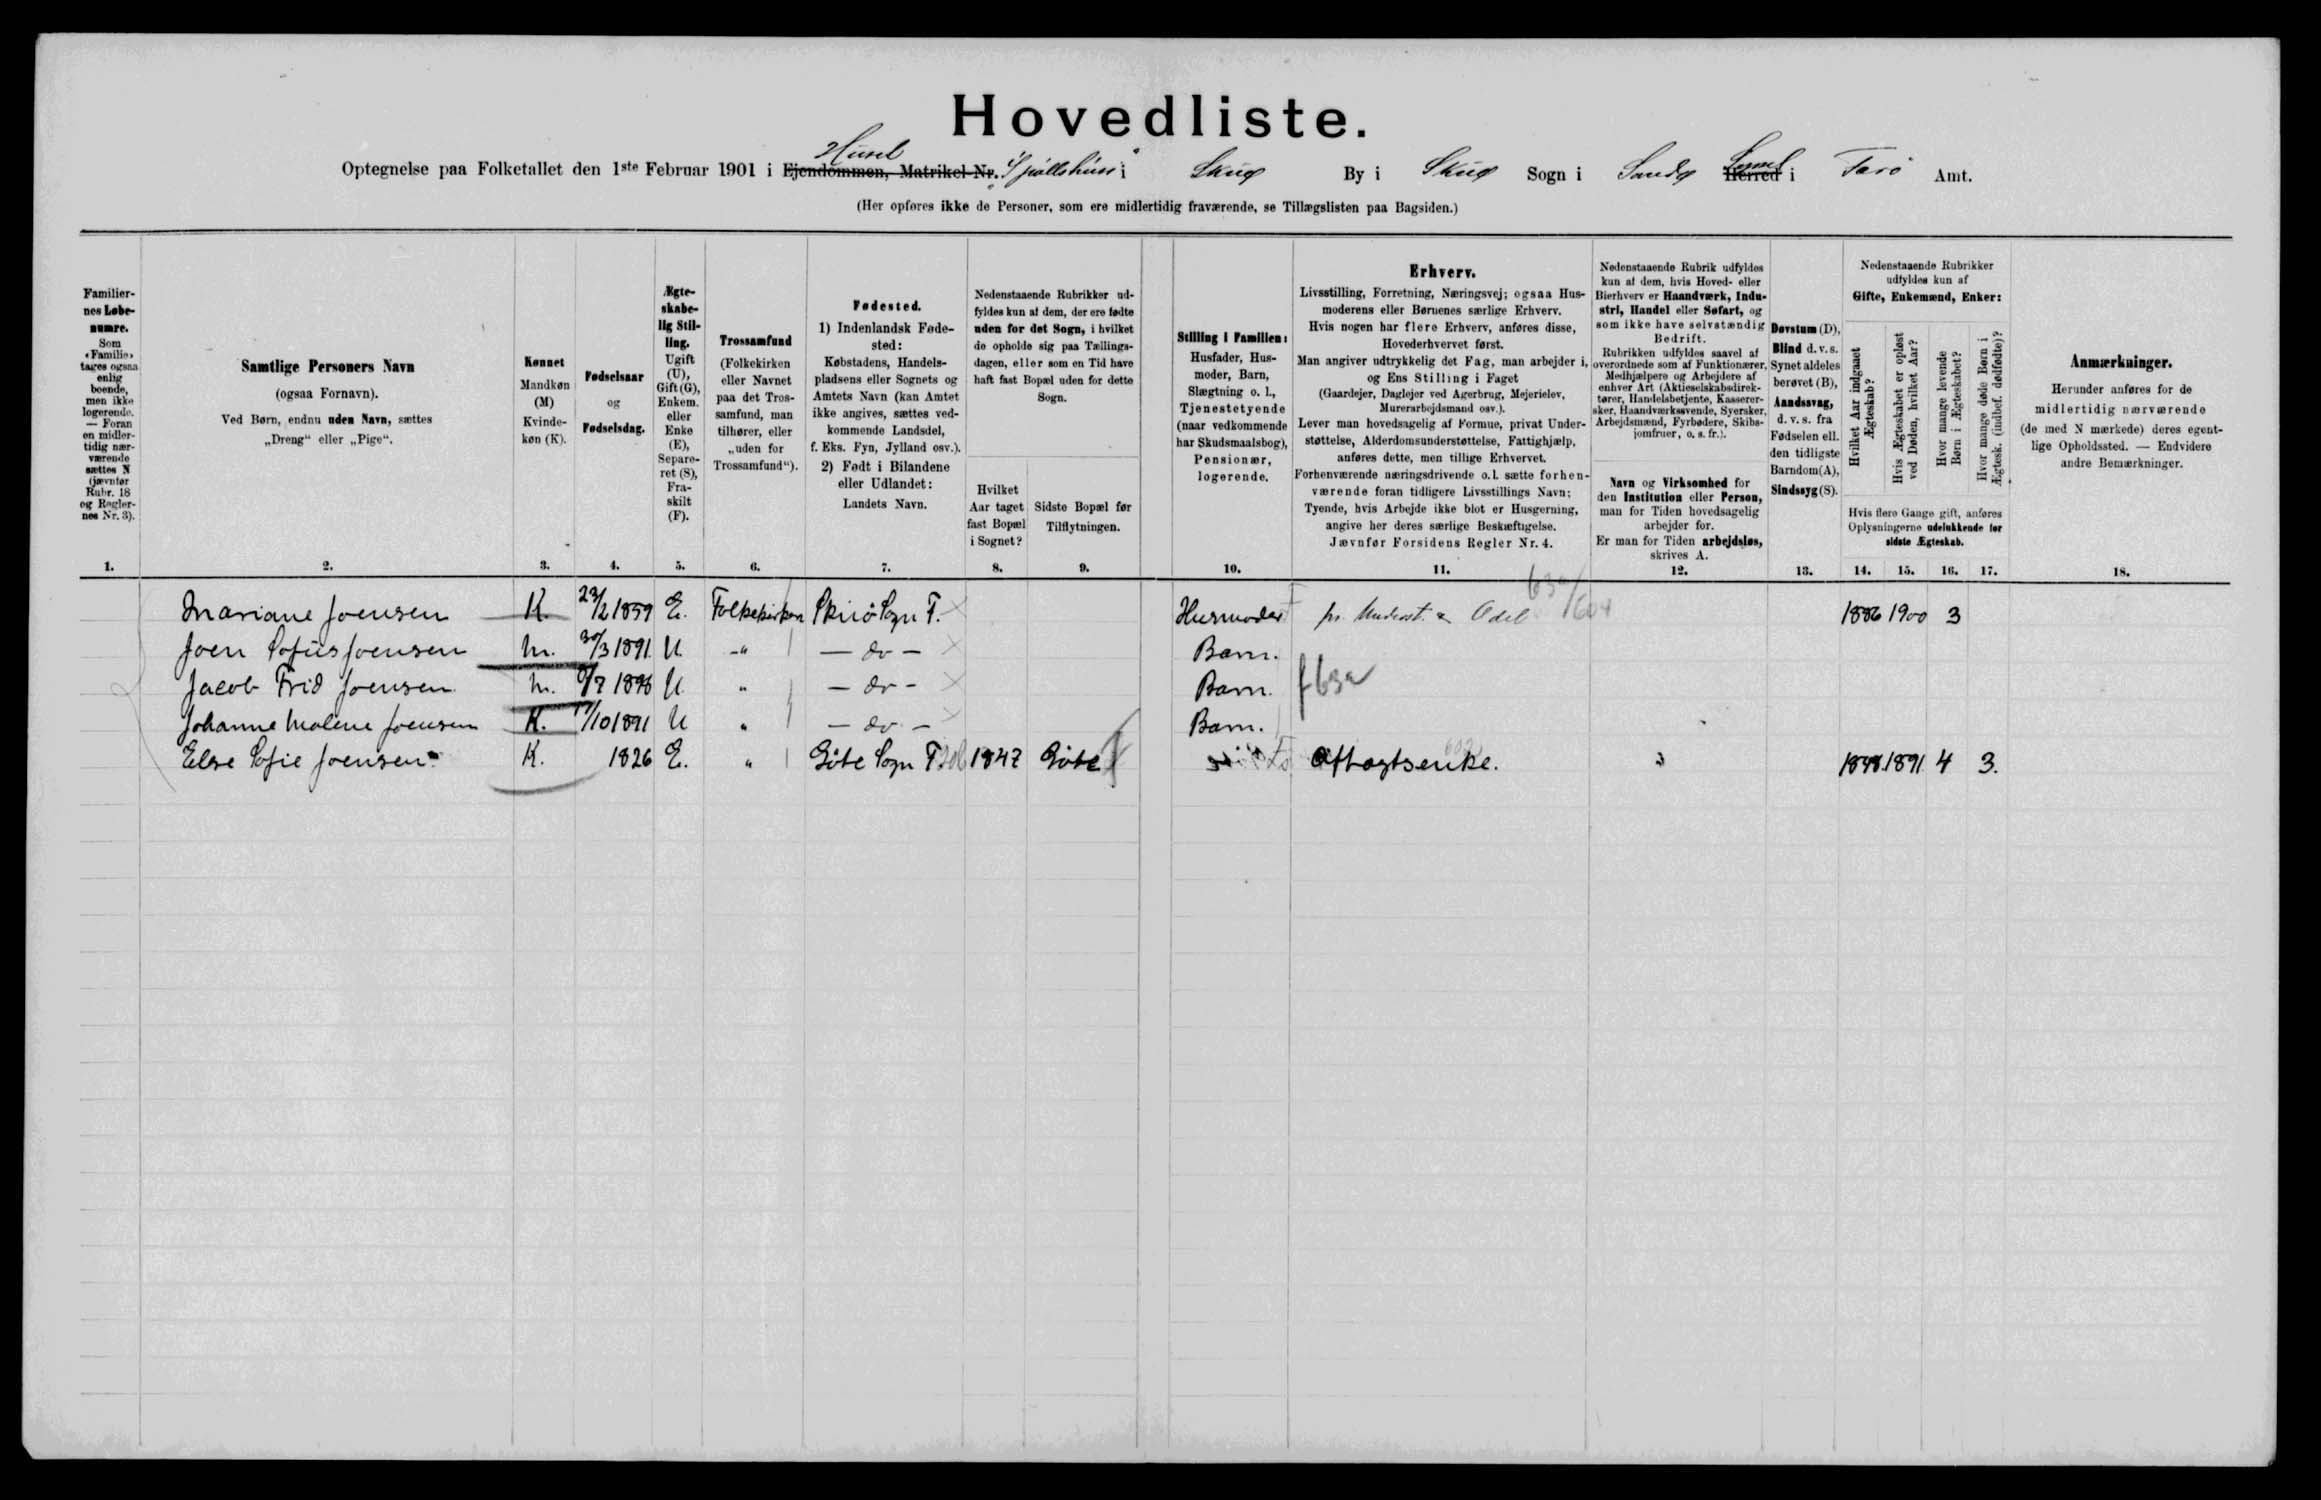 Hovedliste.
Optegnelse paa Folketallet den 1ste Februar 1901 i Ejendommen, Matrikel-Nr. Huset i Skuø By i Skuø Sogn i Sandø Herred Syssel i Færø Amt.
(Her opføres ikke de Personer, som ere midlertidig fraværende, se Tillægslisten paa Bagsiden.)
Familiernes Løbenumre.
Som «Familie» tages ogsaa enlig boende, men ikke logerende. — Foran en midlertidig nærværende sættes N (jævnfør Rubr. 18 og Reglernes Nr. 3).
Samtlige Personers Navn
(ogsaa Fornavn).
Ved Børn, endnu uden Navn, sættes
„Dreng“ eller „Pige“.
Kønnet
Mandkøn (M)
Kvindekøn (K).
Fødselsaar
og
Fødselsdag.
Ægteskabelig Stilling.
Ugift (U), Gift (G), Enkem. eller Enke (E), Separeret (S), Fraskilt (F).
Trossamfund
(Folkekirken eller Navnet paa det Trossamfund, man tilhører, eller „uden for Trossamfund“).
Fødested.
1) Indenlandsk Fødested:
Købstadens, Handelspladsens eller Sognets og Amtets Navn (kan Amtet ikke angives, sættes vedkommende Landsdel, f. Eks. Fyn, Jylland osv.).
2) Født i Bilandene eller Udlandet:
Landets Navn.
Nedenstaaende Rubrikker udfyldes kun af dem, der ere fødte uden for det Sogn, i hvilket de opholde sig paa Tællingsdagen, eller som en Tid have haft fast Bopæl uden for dette Sogn.
Hvilket Aar taget fast Bopæl i Sognet?
Sidste Bopæl før Tilflytningen.
Stilling i Familien:
Husfader, Husmoder, Barn, Slægtning o. l., Tjenestetyende (naar vedkommende har Skudsmaalsbog), Pensionær, logerende.
Erhverv.
Livsstilling, Forretning, Næringsvej; ogsaa Husmoderens eller Børnenes særlige Erhverv.
Hvis nogen har flere Erhverv, anføres disse, Hovederhvervet først.
Man angiver udtrykkelig det Fag, man arbejder i, og Ens Stilling i Faget
(Gaardejer, Daglejer ved Agerbrug, Mejerielev, Murerarbejdsmand osv.).
Lever man hovedsagelig af Formue, privat Understøttelse, Alderdomsunderstøttelse, Fattighjælp, anføres dette, men tillige Erhvervet.
Forhenværende næringsdrivende o. l. sætte forhenværende foran tidligere Livsstillings Navn;
Tyende, hvis Arbejde ikke blot er Husgerning, angive her deres særlige Beskæftigelse.
Jævnfør Forsidens Regler Nr. 4.
Nedenstaaende Rubrik udfyldes kun af dem, hvis Hoved- eller Bierhverv er Haandværk, Industri, Handel eller Søfart, og som ikke have selvstændig Bedrift.
Rubrikken udfyldes saavel af overordnede som af Funktionærer, Medhjælpere og Arbejdere af enhver Art (Aktieselskabsdirektører, Handelsbetjente, Kasserersker, Haandværkssvende, Syersker, Arbejdsmænd, Fyrbødere, Skibsjomfruer, o. s. fr.).
Navn og Virksomhed for den Institution eller Person, man for Tiden hovedsagelig arbejder for.
Er man for Tiden arbejdsløs, skrives A.
Døvstum (D), Blind d. v. s. Synet aldeles berøvet (B), Aandssvag, d. v. s. fra Fødselen ell. den tidligste Barndom (A), Sindssyg (S).
Nedenstaaende Rubrikker udfyldes kun af
Gifte, Enkemænd, Enker:
Hvilket Aar indgaaet Ægteskab?
Hvis Ægteskabet er opløst ved Døden, hvilket Aar?
Hvor mange levende Børn i Ægteskabet?
Hvor mange døde Børn i Ægtesk. (indbef. dødfødte)?
Hvis flere Gange gift, anføres Oplysningerne udelukkende for sidste Ægteskab.
Anmærkninger.
Herunder anføres for de midlertidig nærværende (de med N mærkede) deres egentlige Opholdssted. — Endvidere andre Bemærkninger.
1. 2. 3. 4. 5. 6. 7. 8. 9. 10. 11. 12. 13. 14. 15. 16. 17. 18.
Mariane Joensen K. 23/2 1859 E. Folkekirken Skuø Sogn F. Husmoder 1886 1900 3
Joen Sofus Joensen M. 30/3 1891 U. -„ — do — Barn.
Jacob Frid Joensen M. /7 1898 U. „ — do — Barn. f 63a
Johanne Malene Joensen K. 17/10 1891 U „ — do — Barn.
Else Sofie Joensen K. 1826 E. „ Göte Sogn F. 1847 Göte Aftægtsenke. 1848. 1891 4 3.